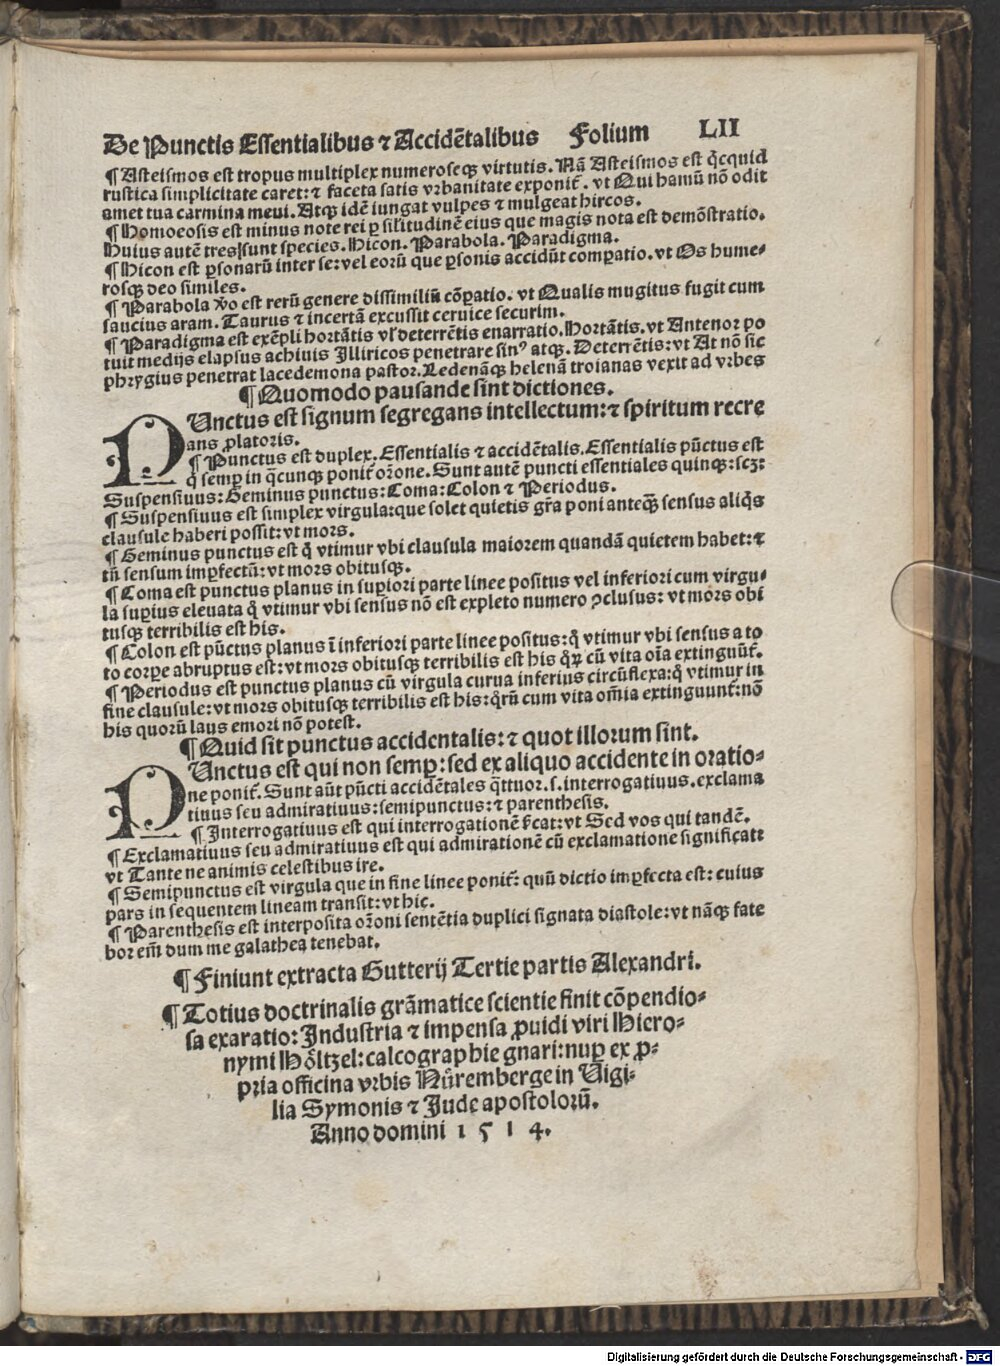 De Punctis Essentialibus ⁊ Accidētalibus Folium LII
¶ Asteismos est tropus multiplex numeroseqꝫ virtutis. Nā Asteismos est qͥcquid
rustica simplicitate caret:⁊ faceta satis vrbanitate exponit᷑. vt Qui hamū nō odit
amet tua carmina meui. Atqꝫ idē iungat vulpes ⁊ mulgeat hircos.
¶ Homoeosis est minus note rei ꝑ silitudinē eius que magis nota est demōstratio.
Huius autē tres sunt species. Hicon. Parabola. Paradigma.
¶ Hicon est ꝑsonarū inter se: vel eorū que ꝑsonis accidūt comꝑatio. vt Os hume-
rosqꝫ deo similes.
¶ Parabola v̆o est rerū genere dissimiliū cōꝑatio. vt Qualis mugitus fugit cum
saucius aram. Taurus ⁊ incertā excussit ceruice securim.
¶ Paradigma est exēpli hortātis vl̓ deterrētis enarratio. Hortātis. vt Antenor po
tuit medijs elapsus achiuis Illiricos penetrare sinꝰ atqꝫ. Deterrētis: vt At nō sic
phrygius penetrat lacedemona pastor. Ledenāqꝫ helenā troianas vexit ad vrbes
¶ Quomodo pausande sint dictiones.
PUnctus est signum segregans intellectum:⁊ spiritum recrę
ans ꝓlatoris.
¶ Punctus est duplex. Essentialis ⁊ accidētalis. Essentialis pūctus est
q̄ semꝑ in qͣcunqꝫ ponit᷑ orōne. Sunt autē puncti essentiales quinqꝫ: scꝫ:
Suspensiuus: Geminus punctus: Coma: Colon ⁊ Periodus.
¶ Suspensiuus est simplex virgula: que solet quietis gr̄a poni anteqꝫ̄ sensus aliqͥs
clausule haberi possit: vt mors.
¶ Geminus punctus est q̄ vtimur vbi clausula maiorem quandā quietem habet:⁊
tn̄ sensum imꝑfectū: vt mors obitusqꝫ.
¶ Coma est punctus planus in suꝑiori parte linee positus vel inferiori cum virgu-
la suꝑius eleuata q̄ vtimur vbi sensus nō est expleto numero ꝯclusus: vt mors obi
tusqꝫ terribilis est his.
¶ Colon est pūctus planus ī inferiori parte linee positus: q̄ vtimur vbi sensus a to
to corꝑe abruptus est: vt mors obitusqꝫ terribilis est his qͦꝝ cū vita oīa extinguūt᷑.
¶ Periodus est punctus planus cū virgula curua inferius circūflexa: q̄ vtimur in
fine clausule: vt mors obitusqꝫ terribilis est his: qͦrū cum vita om̄ia extinguunt᷑: nō
his quorū laus emori nō potest.
¶ Quid sit punctus accidentalis:⁊ quot illorum sint.
PUnctus est qui non semꝑ: sed ex aliquo accidente in oratio-
ne ponit᷑. Sunt aūt pūcti accidētales qͣttuor. s. interrogatiuus. exclama
tiuus seu admiratiuus: semipunctus:⁊ parenthesis.
¶ Interrogatiuus est qui interrogationē sͥcat: vt Sed vos qui tandē.
¶ Exclamatiuus seu admiratiuus est qui admirationē cū exclamatione significat:
vt Tante ne animis celestibus ire.
¶ Semipunctus est virgula que in fine linee ponit᷑: quū dictio imꝑfecta est: cuius
pars in sequentem lineam transit: vt hic.
¶ Parenthesis est interposita orōni sentētia duplici signata diastole: vt nāqꝫ fate
bor em̄ dum me galathea tenebat.
¶ Finiunt extracta Gutterij Tertie partis Alexandri.
¶ Totius doctrinalis grāmatice scientie finit cōpendio-
sa exaratio: Industria ⁊ impensa ꝓuidi viri Hiero-
nymi Höltzel: calcographie gnari: nuꝑ ex ꝓ-
pria officina vrbis Nūremberge in Vigi-
lia Symonis ⁊ Jude apostolorū.
Anno domini 1 5 1 4.
Digitalisierung gefördert durch die Deutsche Forschungsgemeinschaft - DFG